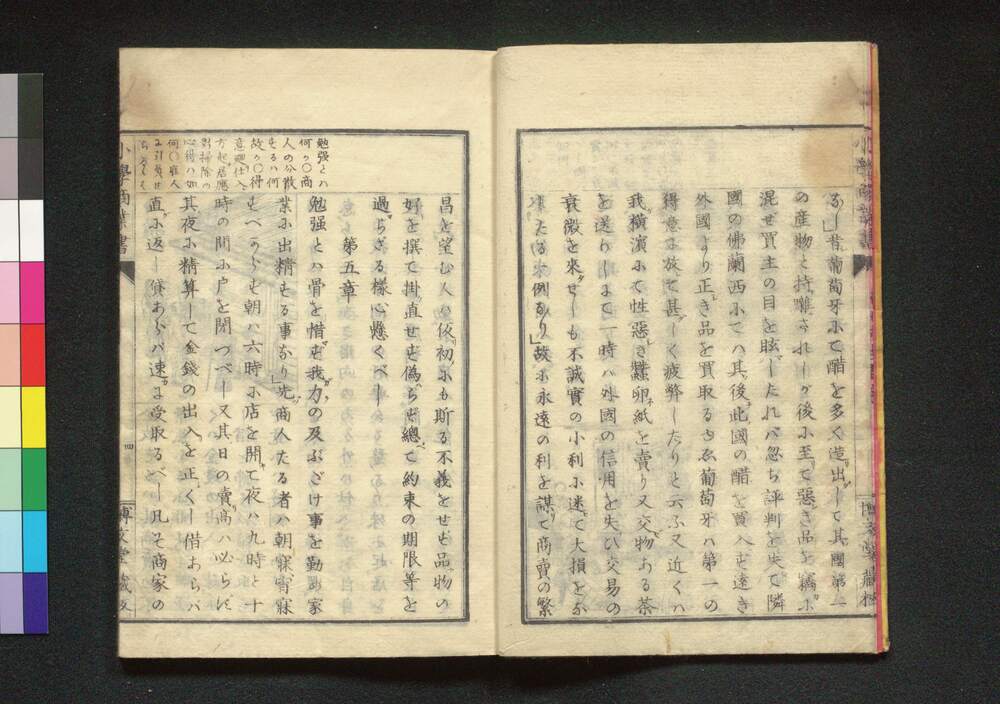 るし」昔葡萄牙ニて醋を多く造出して其國第一
の産物と持囃されしが後ニ至て惡き品を竊ニ
混ぜ買主の目を眩ましたれバ忽ち評判を失て隣
國の佛蘭西ニてハ其後此國の醋を買入せず遠き
外國より正き品を買取るゆゑ葡萄牙ハ第一の
得意ニ放て甚しく疲弊したりと云ふ又近くハ
我横濱ニて性惡き蠶卵紙を賣り又交物ある茶
を送りしまで一時ハ外國の信用を失ひ交易の
衰微を來せしも不誠實の小利ニ迷て大損をな
したる來例なり」故ニ永遠の利を謀て商賣の繁
昌を望む人ハ仮初ニも斯る不義をせず品物の
好を撰て掛直せず偽らず總て約束の期限等を
過らざる樣心懸くべし
第五章
勉强とハ骨を惜ず我力の及ぶだけ事を勤め家
業ニ出精する事なり」先商人たる者ハ朝寐宵寐
すべからず朝ハ六時ニ店を開て夜ハ九時と十
時の間ニ戸を閉つべし又其日の賣高ハ必らず
其夜ニ精算して金錢の出入を正くし借あらバ
直ニ返し貸あらバ速ニ受取るべし凡そ商家の
勉强とハ
何か〇商
人の分散
するハ何
故か〇得
意廻仕入
方起居應
對掃除の
心得ハ如
何〇雇人
小學商業書
四
博文堂藏版